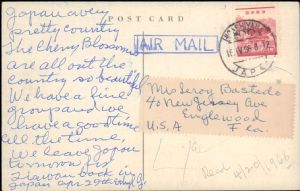 Japan a very
pretty country
The Cherry Blossoms
are all out the
country so beautiful
We have a fine
group and we
have a good time
all the time,
We leave Japan
tomorrow
back in
Japan Apr 29th
POST CARD
AIR MAIL
JAPAN
Miss Leroy Bastedo
40 New Jersey Ave
Englewood
U.S.A Fla.